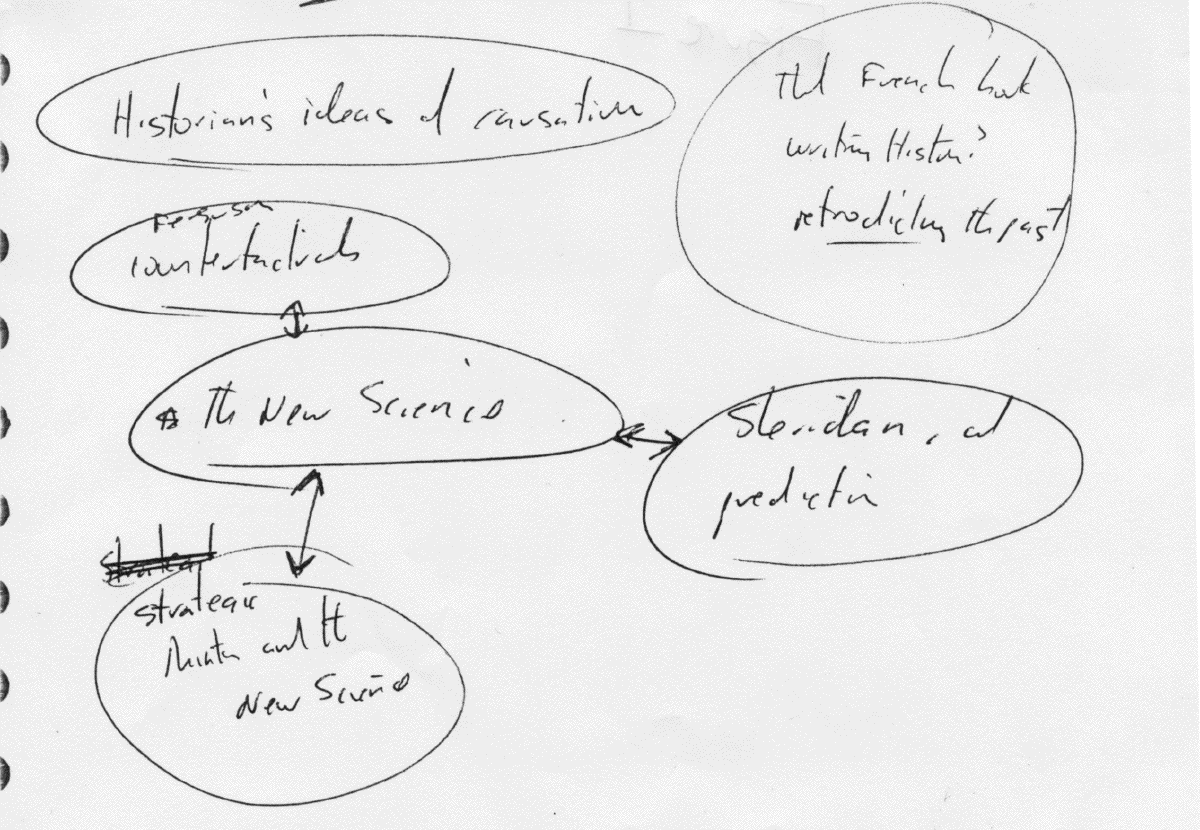 Historian's ideas of causation
The French book
writing History?
retrodicting the past
Ferguson
counterfactuals
The New Science
Sheridan, and
prediction
strategic
and the
New Science